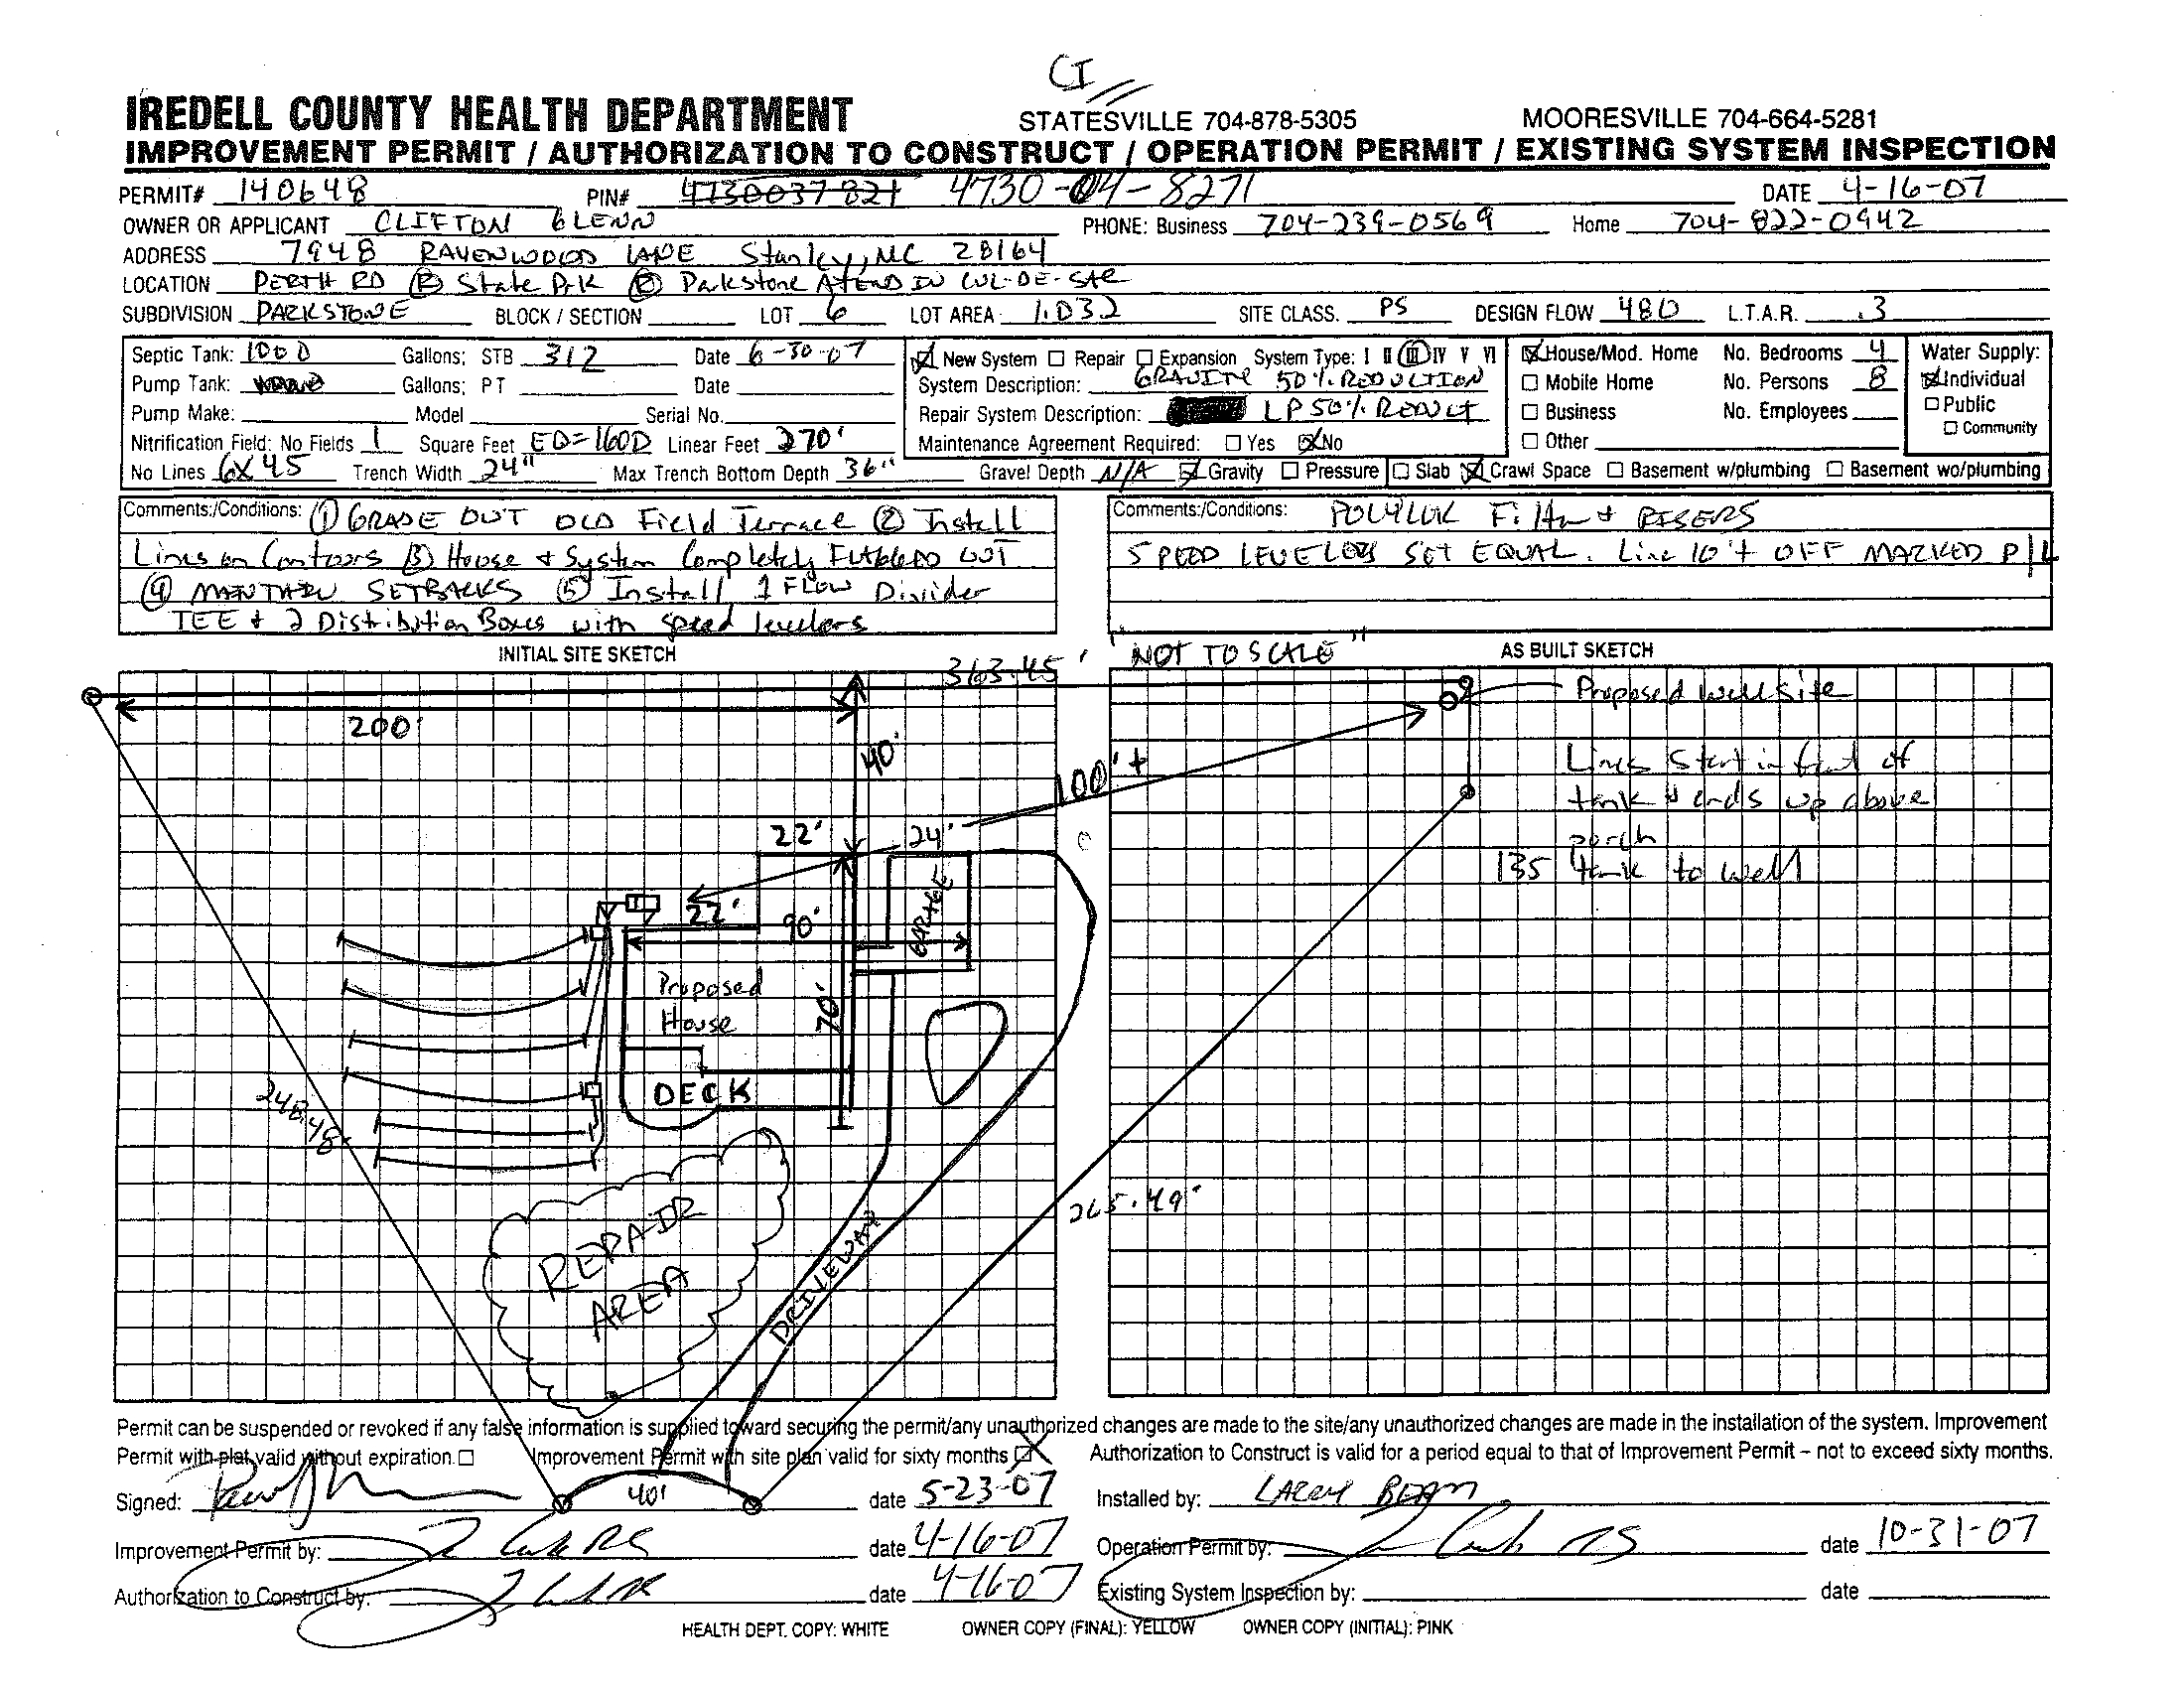 CI
IREDELL COUNTY HEALTH DEPARTMENT STATESVILLE 704-878-5305 MOORESVILLE 704-664-5281
IMPROVEMENT PERMIT / AUTHORIZATION TO CONSTRUCT / OPERATION PERMIT / EXISTING SYSTEM INSPECTION
PERMIT# 140648 PIN# 4730037821 4730-04-8271 DATE 4-16-07
OWNER OR APPLICANT CLIFTON GLENN PHONE: Business 704-239-0569 Home 704-822-0942
ADDRESS 7948 RAVENWOOD LANE Stanley, NC 28164
LOCATION PERTH RD (R) State Prk (R) Parkstone AT END IN CUL-DE-SAC
SUBDIVISION PARKSTONE BLOCK / SECTION LOT 6 LOT AREA 1.032 SITE CLASS. PS DESIGN FLOW 480 L.T.A.R. .3
Septic Tank: 1000 Gallons; STB 312 Date 6-30-07 New System Repair Expansion System Type: I II III IV V VI House/Mod. Home No. Bedrooms 4 Water Supply:
Pump Tank: Gallons; PT Date System Description: GRAVITY 50% REDUCTION Mobile Home No. Persons 8 Individual
Pump Make: Model Serial No. Repair System Description: LP 50% REDUCT Business No. Employees Public
Nitrification Field: No Fields 1 Square Feet ED=1600 Linear Feet 270' Maintenance Agreement Required: Yes No Other Community
No Lines 6X45 Trench Width 24" Max Trench Bottom Depth 36" Gravel Depth N/A Gravity Pressure Slab Crawl Space Basement w/plumbing Basement wo/plumbing
Comments:/Conditions: (1) GRADE OUT OLD Field Terrace (2) Install
Lines on Contours (3) House + System Completely FLAGGED OUT
(4) MAINTAIN SETBACKS (5) Install 1 FLOW Divider
TEE + 2 Distribution Boxes with speed levelers
Comments:/Conditions: POLYLOK Filter + RISERS
SPEED LEVELERS SET EQUAL. Line 10'+ OFF MARKED P/L
INITIAL SITE SKETCH 363.45' "NOT TO SCALE" AS BUILT SKETCH
Proposed well site
200'
40'
Lines Start in front of
100'+
tank & ends up above
22' 24'
porch
135 tank to well
22' 90' GARAGE
Proposed
House
70'
DECK
248.48'
265.49'
REPAIR
AREA
DRIVEWAY
Permit can be suspended or revoked if any false information is supplied toward securing the permit/any unauthorized changes are made to the site/any unauthorized changes are made in the installation of the system. Improvement
Permit with plat valid without expiration. Improvement Permit with site plan valid for sixty months Authorization to Construct is valid for a period equal to that of Improvement Permit – not to exceed sixty months.
Signed: 40' date 5-23-07 Installed by: LARRY BEAM
Improvement Permit by: RS date 4-16-07 Operation Permit by: RS date 10-31-07
Authorization to Construct by: date 4-16-07 Existing System Inspection by: date
HEALTH DEPT. COPY: WHITE OWNER COPY (FINAL): YELLOW OWNER COPY (INITIAL): PINK